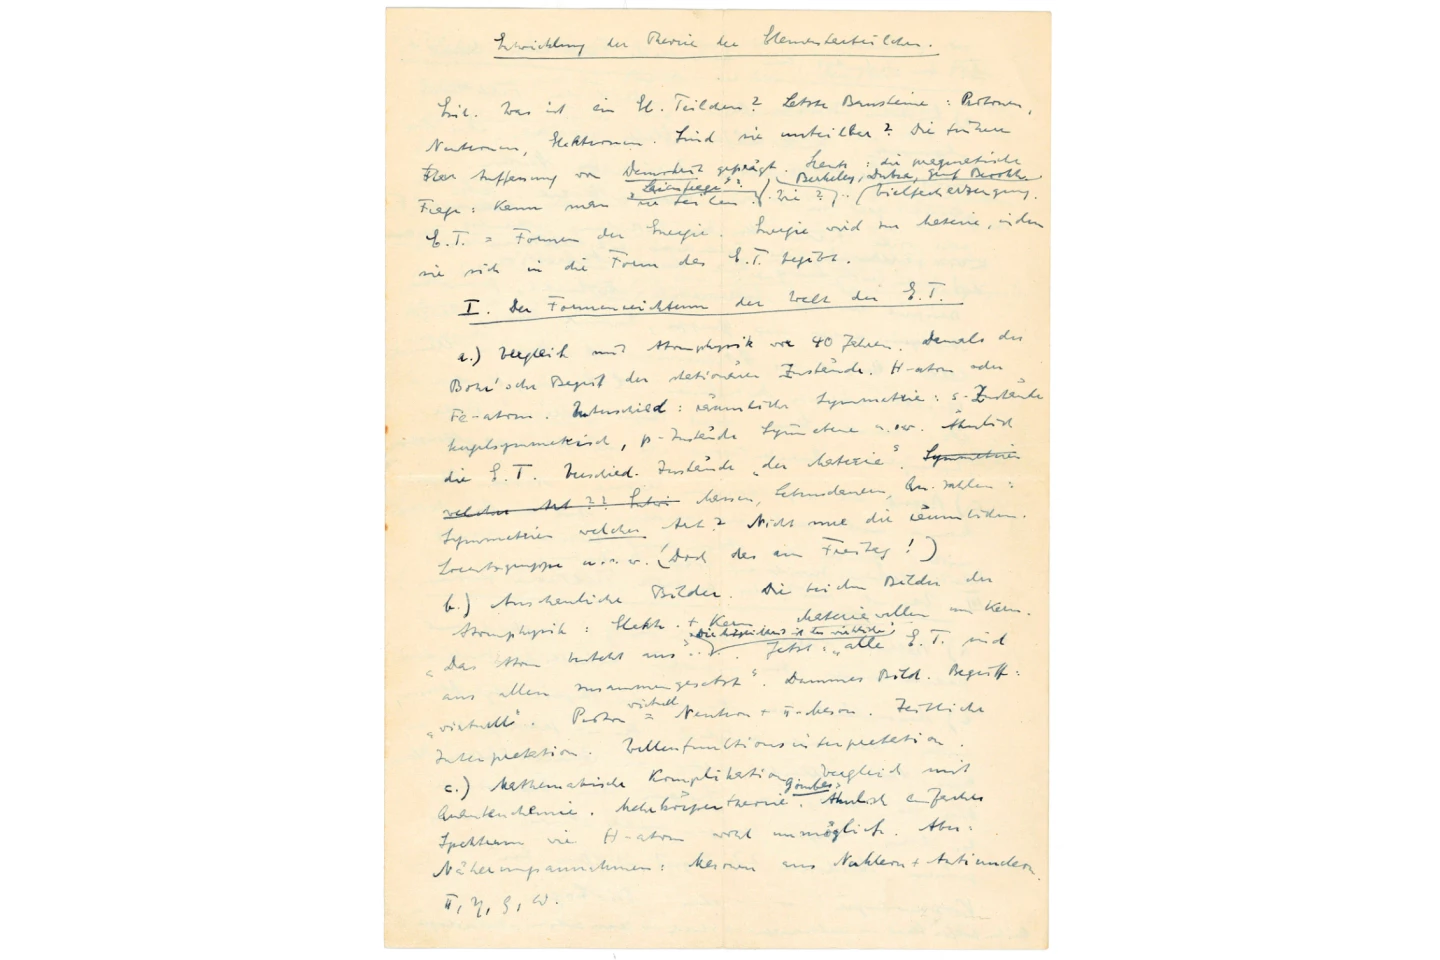 Entwicklung der Theorie der Elementarteilchen.
Einl. Was ist ein El. Teilchen? Letzte Bausteine: Protonen,
Neutronen, Elektronen. Sind sie unteilbar? Die frühere
Auffassung von Demokrit geprägt. Heute: die pragmatische
Berkeley, Dubna, Genf
"Laienfrage":
Frage: Kann man sie teilen. Wie? Vielfacherzeugung.
E.T. = Formen der Energie. Energie wird zu Materie, indem
sie sich in die Form des E.T. begibt.
I. Der Formenreichtum der Welt der E.T.
a.) Vergleich mit Atomphysik vor 40 Jahren. Damals der
Bohr'sche Begriff der stationären Zustände. H-atom oder
Fe-atom. Unterschied: räumliche Symmetrie: s-Zustände
kugelsymmetrisch, p-Zustände u.s.w. Ähnlich
die E.T. Verschied. Zustände "der Materie". Symmetrien
welcher Art?? Massen, Lebensdauern, Qu.-zahlen:
Symmetrien welcher Art? Nicht nur die räumlichen.
Lorentzgruppe u.s.w. (Doch das am Freitag!)
b.) Anschauliche Bilder. Die beiden Bilder der
Atomphysik: Elektr. + Kern Materiewellen um Kern.
"Das Atom besteht aus"... Jetzt: "alle E.T. sind
aus allen zusammengesetzt". Dummes Bild. Begriff:
virtuell
"virtuell". Proton = Neutron + π-Meson. Zeitliche
Interpretation. Wellenfunktionsinterpretation.
c.) Mathematische Komplikation, Vergleich mit
Gombas
Quantenchemie. Mehrkörpertheorie. Ähnlich einfaches
Spektrum wie H-atom wohl unmöglich. Aber:
Näherungsannahmen: Mesonen aus Nukleon + Antinukleon.
π, η, ρ, ω.